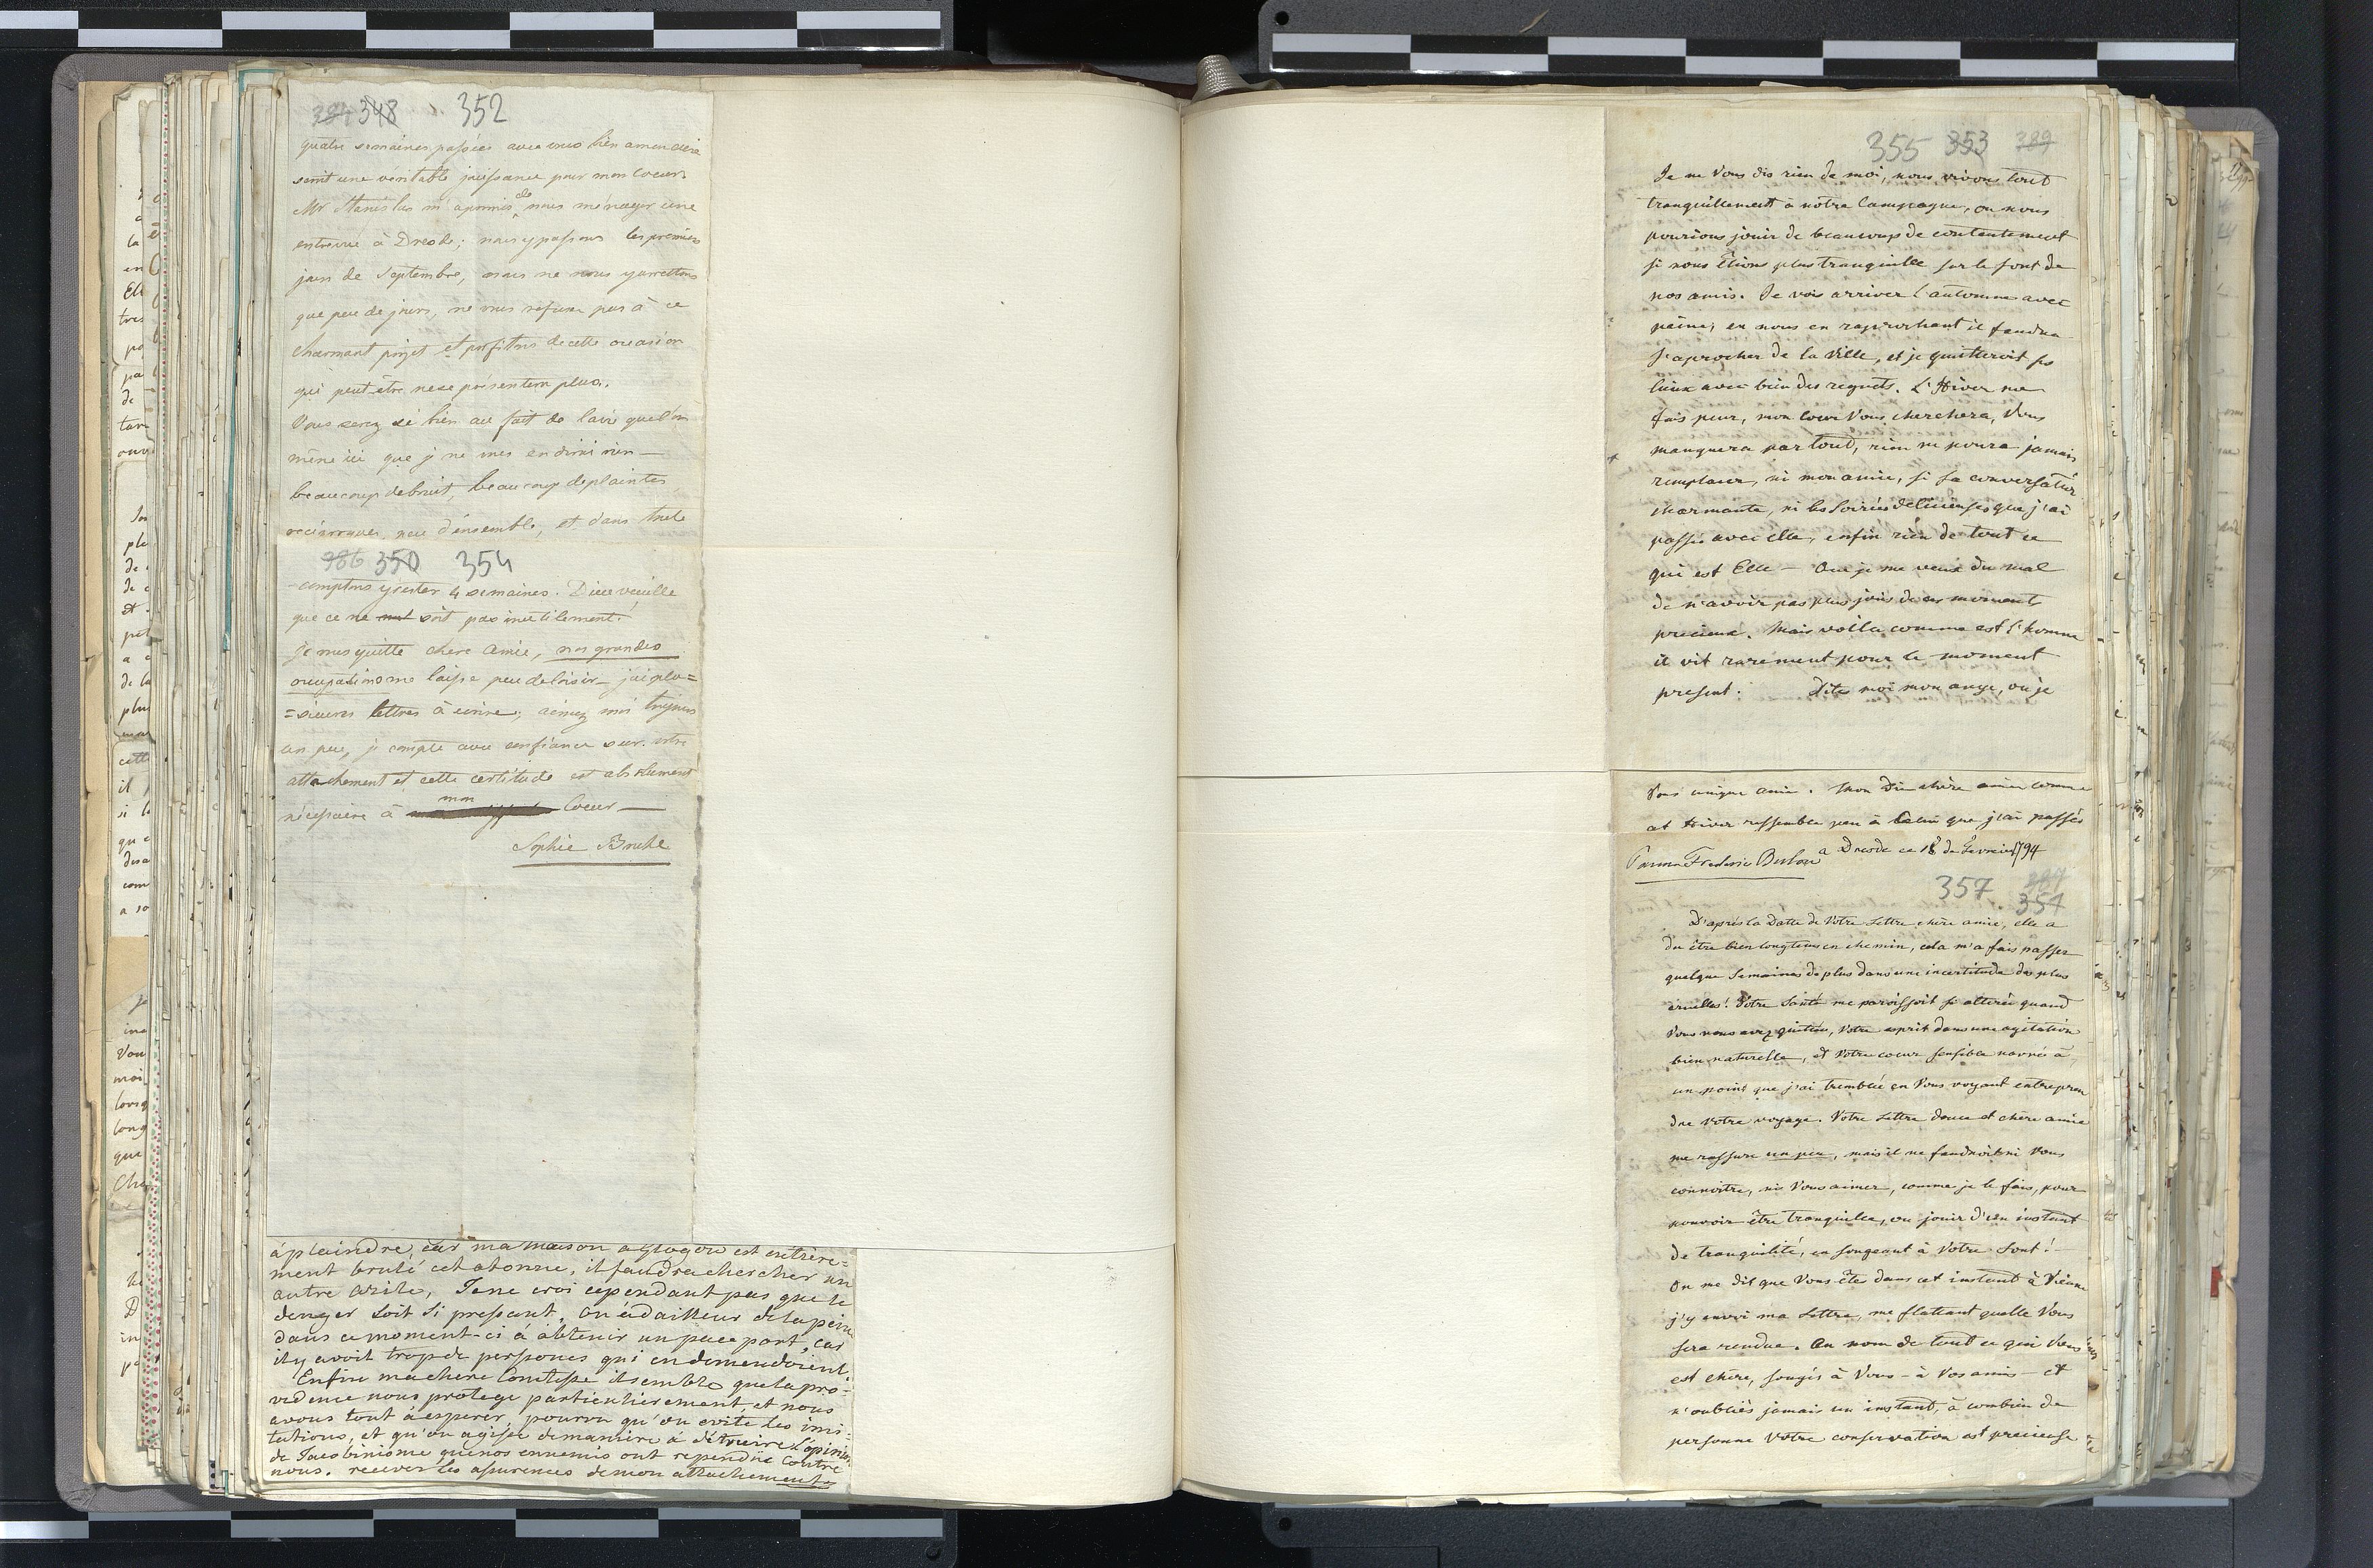 384 348 352
quatre semaines passées avec vous bien amendera
serait une véritable jouissance pour mon coeur.
Mr Stanislas m'a promis de nous ménager une
entrevue à Dresde; nous y passons les premiers
jours de Septembre, mais ne nous y arrettons
que peu de jours, ne vous refusez pas à ce
charmant projet et profitons de cette occasion
qui peut-être ne se présentera plus.
Vous serez si bien au fait de la vie que l'on
mène ici que je ne vous en dirai rien —
beaucoup de bruit, beaucoup de plaintes
réciproques, peu d'ensemble, et dans toute
386 350 354
comptons y rester 4 semaines. Dieu veuille
que ce ne soit pas inutilement!
je vous quitte chère Amie, nos grandes
occupations me laisse peu de loisir — j'ai plu=
=sieures lettres à écrire; aimez moi toujours
un peu, je compte avec confiance sur votre
attachement et cette certitude est absolument
nécessaire à mon Coeur —
Sophie Bruhl
à plaindre, car ma maison a Glogow est entière=
ment brulé cet otonne, il faudra chercher un
autre azile, Je ne croi cependant pas que le
denger soit si pressent, on a d'ailleur de la peine
dans ce moment-ci à obtenir un passe port, car
il y avoit trop de persones qui en demendoient.
Enfin ma chere Comtesse il semble que la pro=
vidence nous protege particulièrement, et nous
avons tout à esperer, pourvu qu'on evite les imi=
tations, et qu'on agisse de manière à détruire l'opinion
de Jacobinisme que nos ennemis ont rependue contre
nous. recevez les assurences de mon attachement
355 353 389
Je ne Vous dis rien de moi, nous vivons tout
tranquillement à nôtre Campagne, ou nous
pourions jouir de beaucoup de contentement
si nous étions plus tranquille sur le sont de
nos amis. Je vois arriver l'automne avec
peine, en nous en raprochant il faudra
s'aprocher de la Ville, et je quitterois ses
lieux avec bien des regrets. L'Hiver me
fais peur, mon coeur Vous cherchera, Vous
manquera par tout, rien ne poura jamais
remplacer, ni mon amie, si sa conversation
charmante, ni les Soirées delicieuses que j'ai
passée avec elle, enfin rien de tout ce
qui est Elle — Que je me veux du mal
de n'avoir pas plus joui de ces moments
precieux. Mais voila comme est l'homme
il vit rarement pour le moment
present. Dites moi mon ange, où je
Vous unique amie. Mon Dieu chère amie comme
cet Hiver ressemble peu à Celui que j'ai passés
Frederic Bulow a Dresde ce 18 de Fevrier 1794
357 354
D'après la Datte de Votre Lettre chère amie, elle a
du être bien longtems en chemin, cela m'a fais passer
quelque Semaines de plus dans une incertitude des plus
cruelles! Votre Santé me paroissoit si alterée quand
Vous nous avez quittées, Votre esprit dans une agitation
bien naturelle, et Votre coeur sensible navré à
un point que j'ai tremblée en Vous voyant entrepren
dre Votre voyage. Votre Lettre douce et chère amie
me rassure un peu, mais il ne faudroit ni Vous
connoitre, ni Vous aimer, comme je le fais, pour
pouvoir être tranquille, ou jouir d'un instant
de tranquilité, en songeant à Votre Sort! —
On me dit que Vous êtes dans cet instant à Vienne
j'y envoi ma Lettre, me flattant quelle Vous
sera rendue. Au nom de tout ce qui Vous
est chère, songés à Vous — à Vos amis — et
n'oubliés jamais un instant, à combien de
personne Votre conservation est precieuse